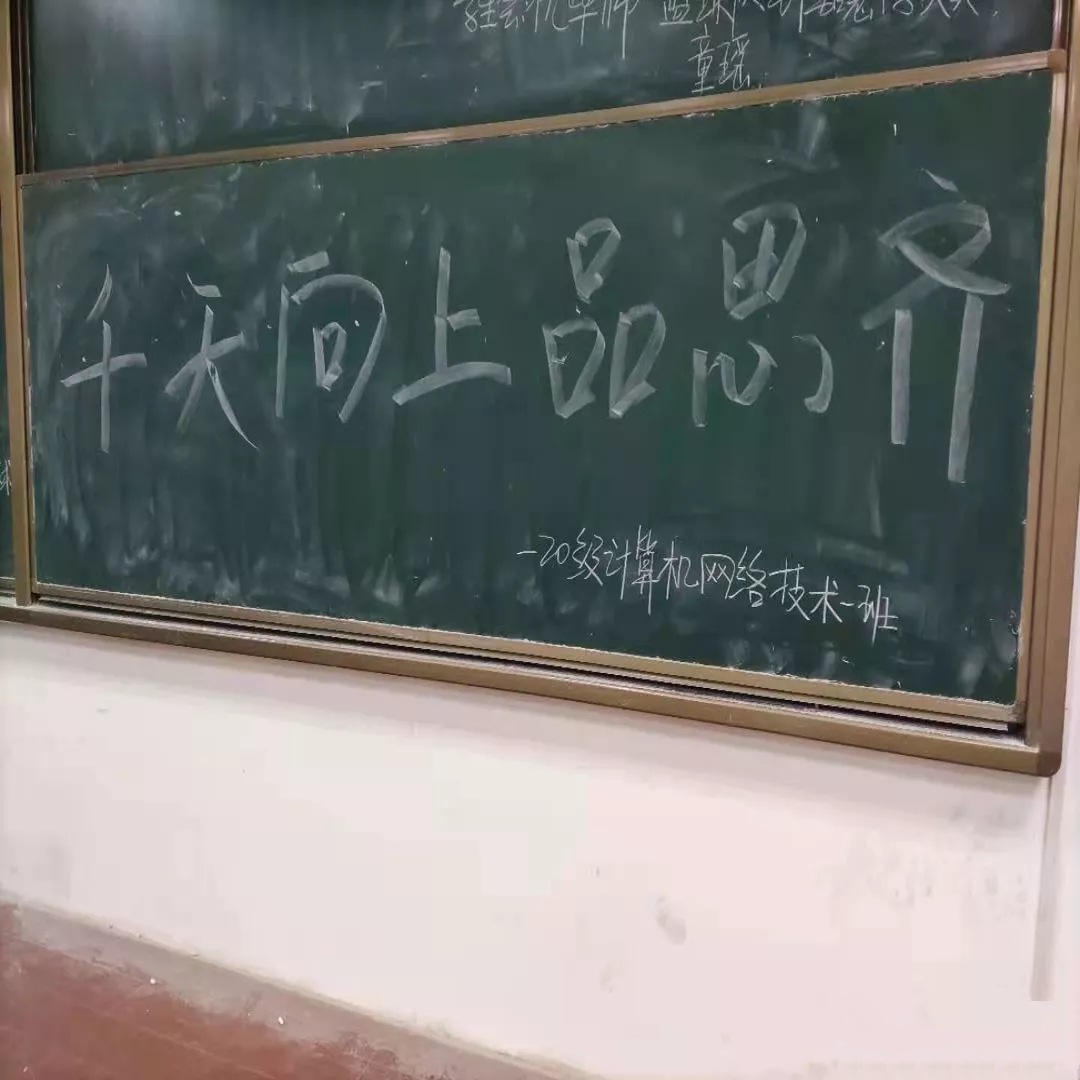 童瑶
千天向上品思齐
-20级计算机网络技术一班
术